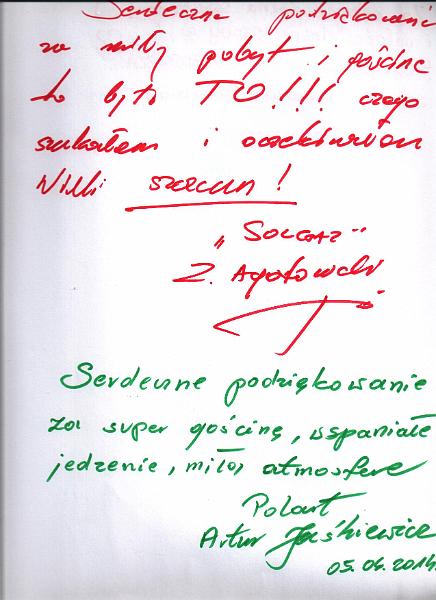 Serdeczne podziękowania
za miły pobyt i gościnę
to było TO!!! czego
szukałem i oczekiwałem
Wielki szacun!
„SOLGAZ”
Z.
Serdeczne podziękowanie
za super gościnę, wspaniałe
jedzenie, miłą atmosferę
Polart
Artur Jaśkiewicz
05.06.2014